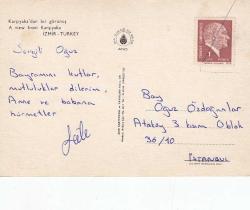 Karşıyaka'dan bir görünüş
A view from Karşıyaka
İZMİR - TURKEY
Sevgili Oğuz
Bayramını kutlar,
mutluluklar dilerim,
Anne ve babana
hürmetler
Bay
Oğuz Özdoğanlar
Ataköy 3. kısım O blok
36/10
İSTANBUL